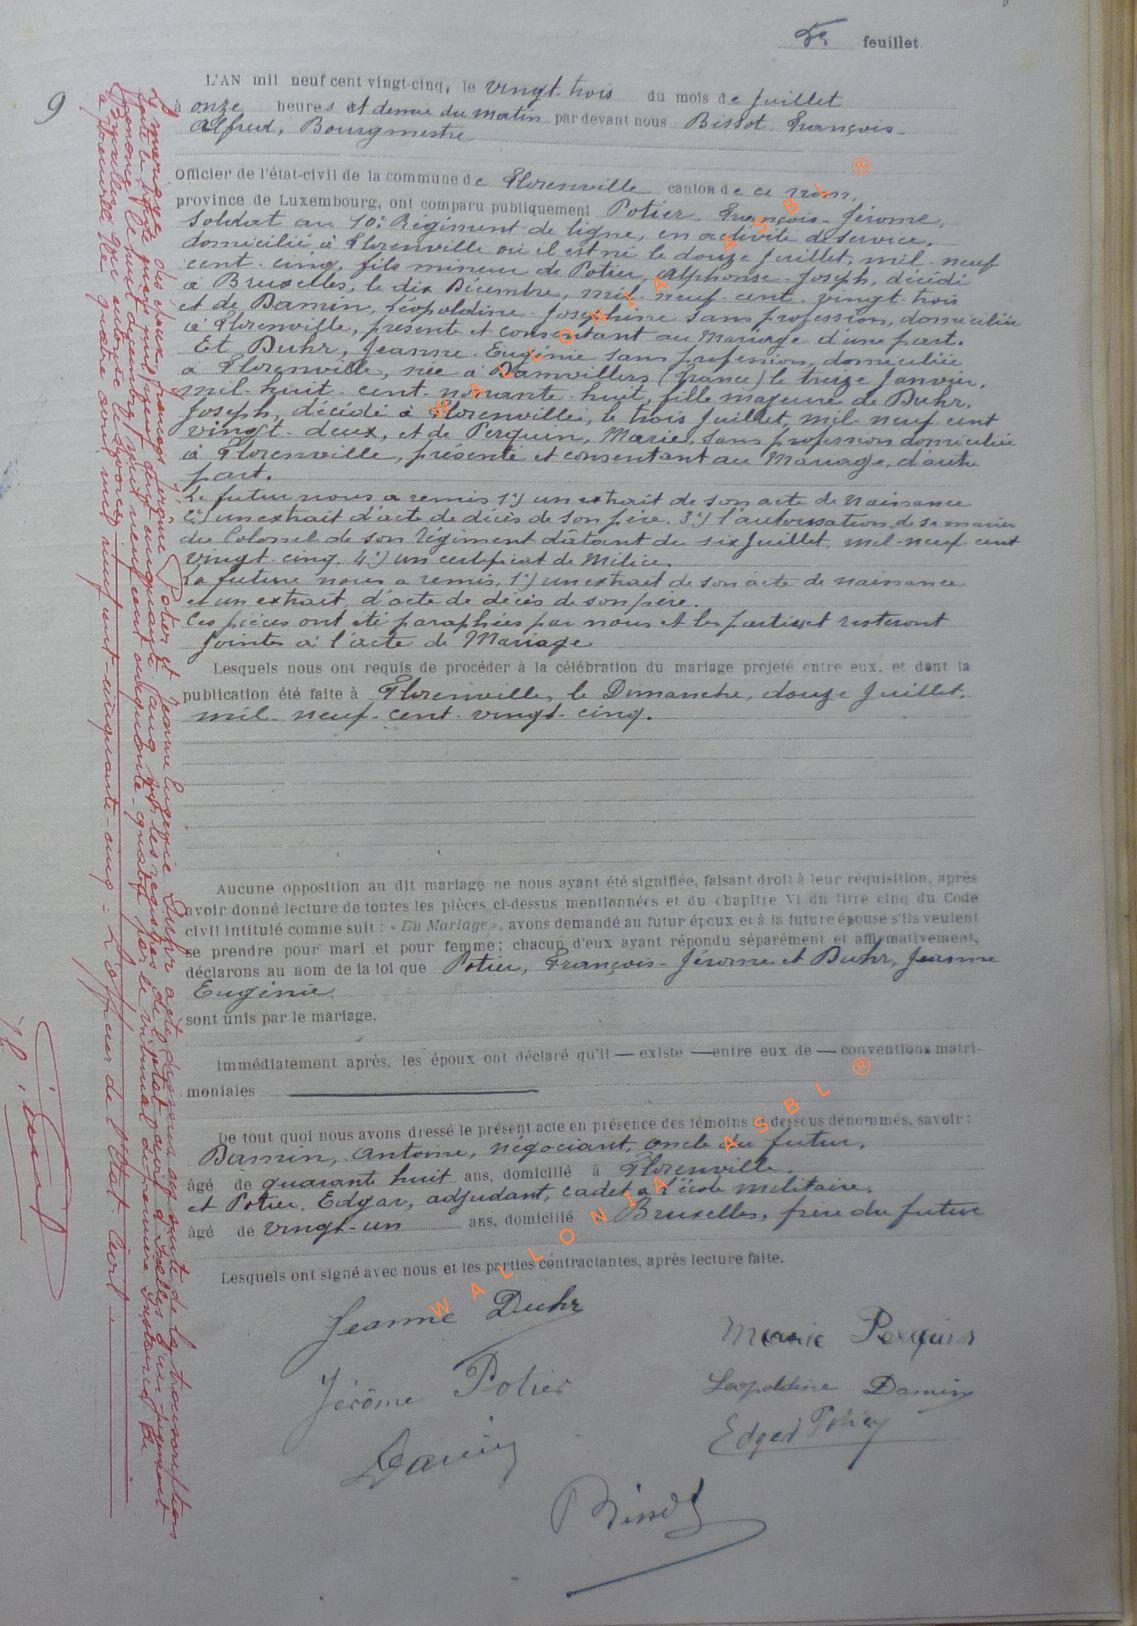 5e feuillet
9
L'AN mil neuf cent vingt-cinq, le vingt-trois du mois de Juillet
à onze heures et demie du matin par devant nous Bissot, François-
Alfred, Bourgmestre
Officier de l'état-civil de la commune de Florenville canton de ce nom,
province de Luxembourg, ont comparu publiquement Potier, François-Jérome,
Soldat au 10e Régiment de ligne, en activité de service,
domicilié à Florenville où il est né le douze Juillet, mil-neuf
cent-cinq, fils mineur de Potier, Alphonse-Joseph, décédé
à Bruxelles, le dix Décembre, mil-neuf-cent-vingt-trois
et de Damin, Léopoldine-Joséphine sans profession, domiciliée
à Florenville, présente et consentant au Mariage d'une part.
Et Duhr, Jeanne-Eugénie sans profession, domiciliée
à Florenville, née à Damvillers (France) le treize Janvier,
mil-huit-cent-nonante-huit, fille majeure de Duhr,
Joseph, décédé à Florenville, le trois Juillet, mil-neuf cent
vingt-deux, et de Perquin, Marie, sans profession domiciliée
à Florenville, présente et consentant au Mariage, d'autre
part.
Le futur nous a remis 1°) un extrait de son acte de Naissance
2°) un extrait d'acte de décès de son père. 3°) l'autorisation de se marier
du Colonel de son Régiment datant du six Juillet, mil-neuf cent
vingt-cinq. 4°) un certificat de Milice.
La future nous a remis, 1°) un extrait de son acte de naissance
et un extrait d'acte de décès de son père.
Ces pièces ont été paraphées par nous et les parties et resteront
jointes à l'acte de Mariage
Lesquels nous ont requis de procéder à la célébration du mariage projeté entre eux, et dont la
publication été faite à Florenville, le Dimanche, douze Juillet,
mil-neuf-cent-vingt-cinq.
Aucune opposition au dit mariage ne nous ayant été signifiée, faisant droit à leur réquisition, après
avoir donné lecture de toutes les pièces ci-dessus mentionnées et du chapitre VI du titre cinq du Code
civil intitulé comme suit : « Du Mariage », avons demandé au futur époux et à la future épouse s'ils veulent
se prendre pour mari et pour femme; chacun d'eux ayant répondu séparément et affirmativement,
déclarons au nom de la loi que Potier, François-Jérome et Duhr, Jeanne
Eugénie
sont unis par le mariage.
Immédiatement après, les époux ont déclaré qu'il — existe — entre eux de — conventions matri-
moniales
De tout quoi nous avons dressé le présent acte en présence des témoins ci-dessus dénommés, savoir :
Damin, Antoine, négociant, oncle du futur,
âgé de quarante huit ans, domicilié à Florenville,
et Potier, Edgar, adjudant, cadet à l'école militaire,
âgé de vingt-un ans, domicilié Bruxelles, frère du futur
Lesquels ont signé avec nous et les parties contractantes, après lecture faite.
Jeanne Duhr
Marie Perquin
Jérôme Potier
Leopoldine Damin
Edgard Potier
Damin
Bissot
Le mariage des époux François Jérôme Potier et Jeanne Eugénie Duhr acte
mil neuf cent cinquante-cinq : L'officier de l'Etat Civil
WALLONIA ASBL ®
WALLONIA ASBL ®